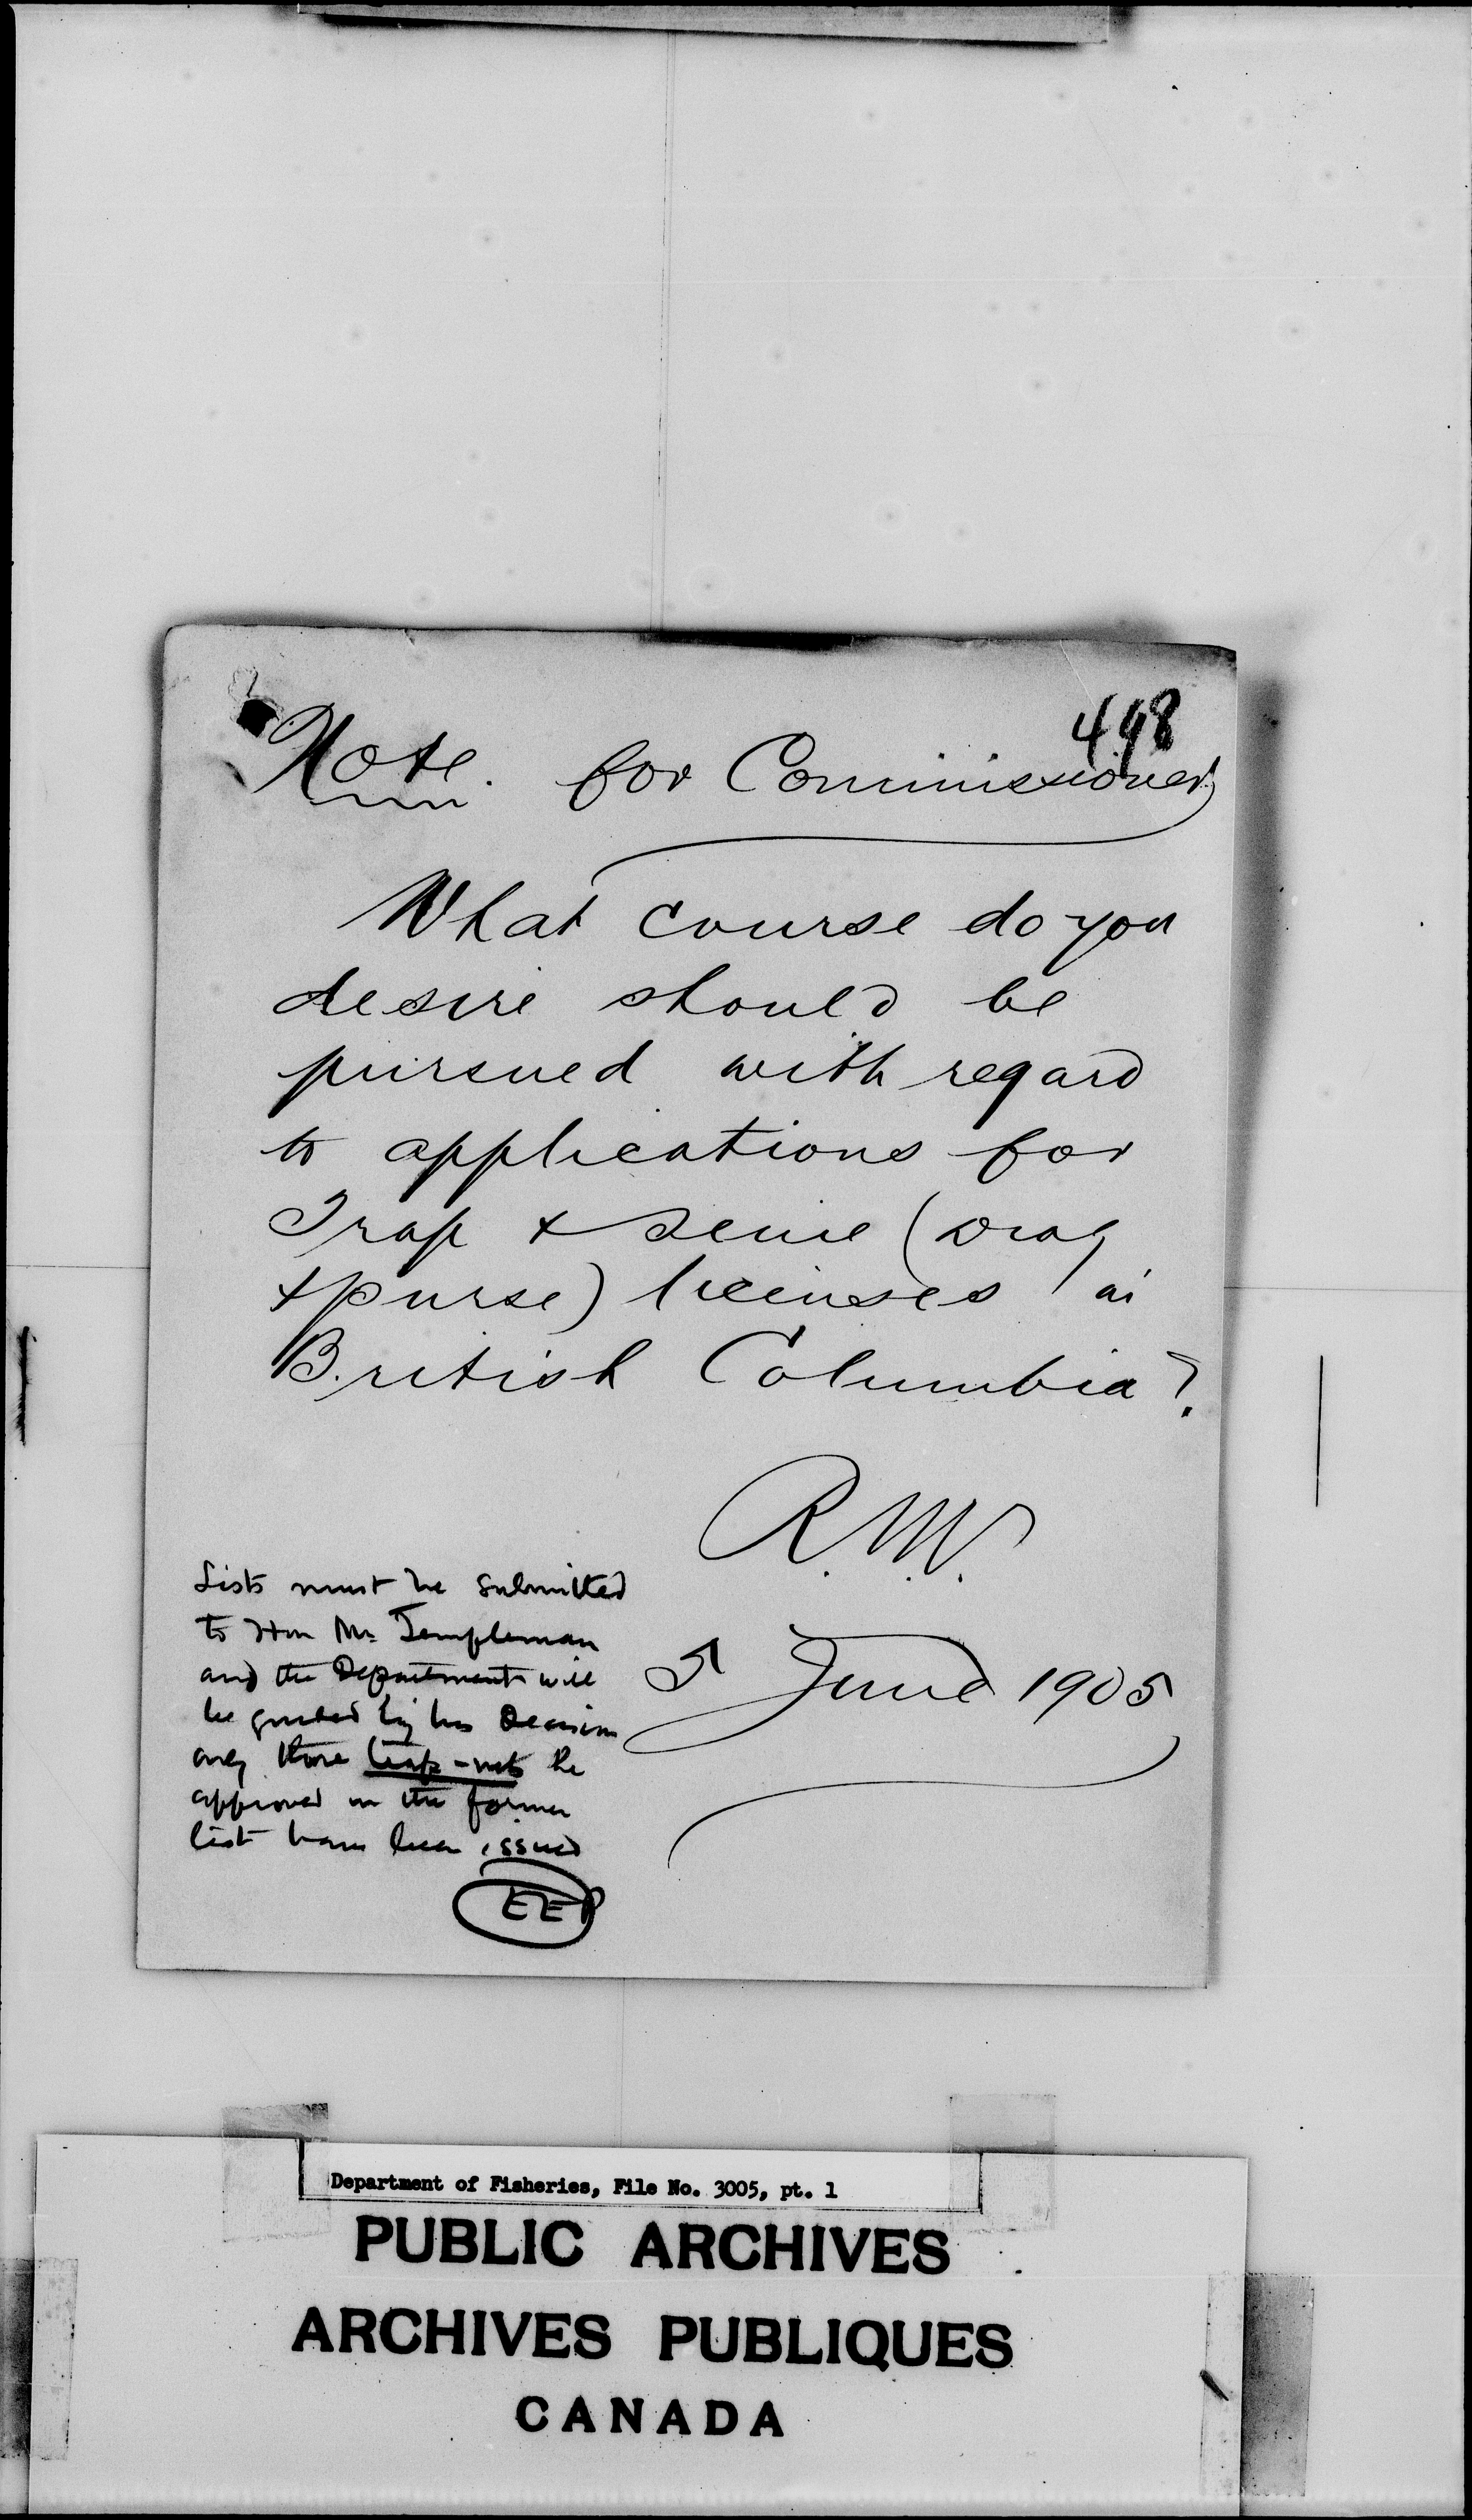 498
Note. for Commissioner
What course do you
desire should be
pursued with regard
to applications for
Trap & Seine (Drag
& purse) licenses in
British Columbia?
R.N.V.
5 June 1905
Lists must be submitted
to Hon Mr. Templeman
and the Department will
be guided by his decision
only those trap-nets he
approved in the former
list have been issued
EEP
Department of Fisheries, File No. 3005, pt. 1
PUBLIC ARCHIVES
ARCHIVES PUBLIQUES
CANADA